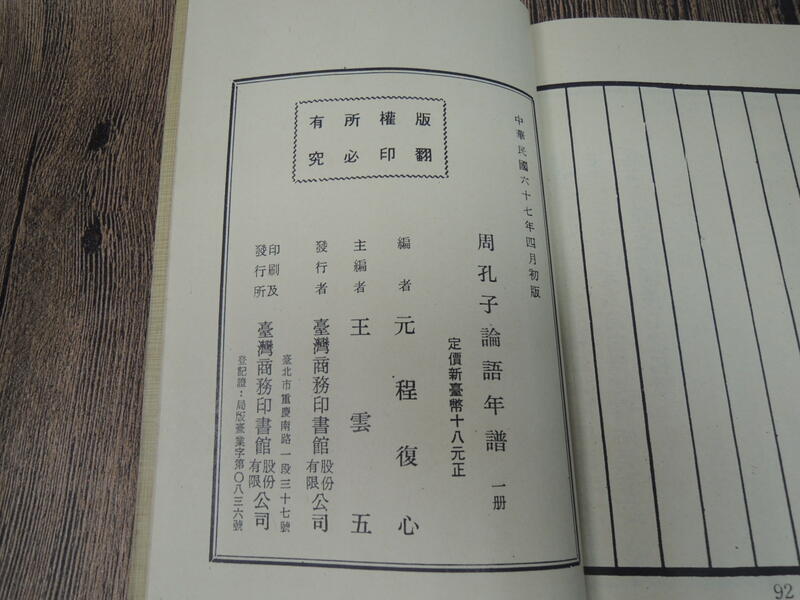 版權所有
翻印必究
中華民國六十七年四月初版
周孔子論語年譜 一册
定價新臺幣十八元正
編者 元程復心
主編者 王雲五
發行者 臺灣商務印書館股份有限公司
臺北市重慶南路一段三十七號
印刷及發行所 臺灣商務印書館股份有限公司
登記證：局版臺業字第〇八三六號
92